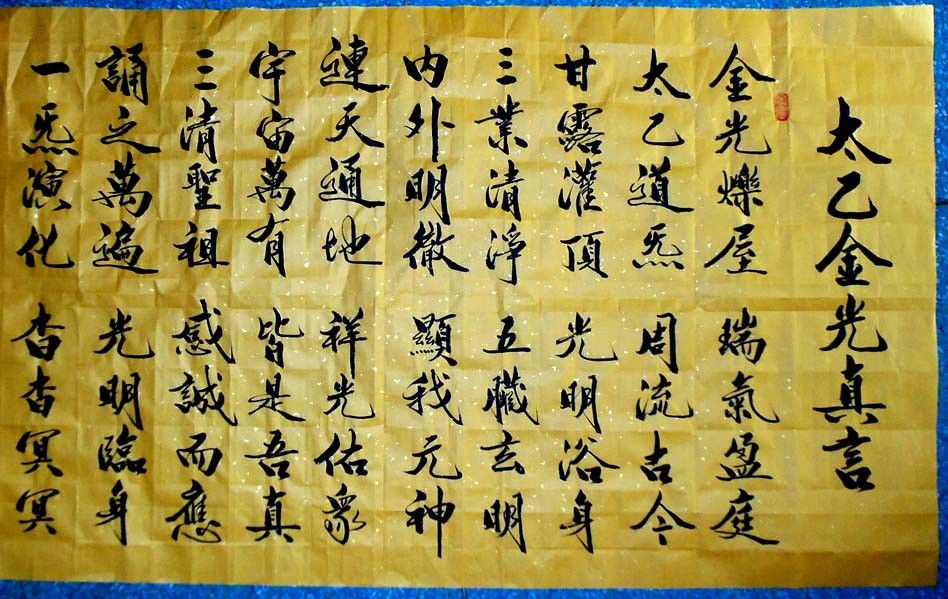 太乙金光真言
金光爍屋 瑞氣盈庭
太乙道炁 周流古今
甘露灌頂 光明浴身
三業清淨 五臟玄明
內外明徹 顯我元神
連天通地 祥光佑眾
宇宙萬有 皆是吾真
三清聖祖 感誠而應
誦之萬遍 光明臨身
一炁演化 杳杳冥冥